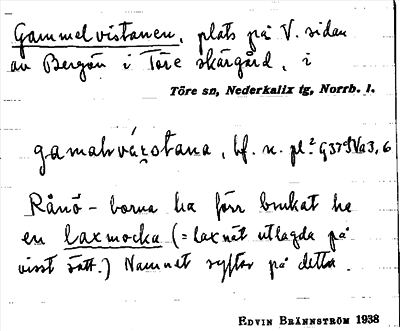 Gammelvistanen, plats på V. sidan
av Bergön i Töre skärgård, i
Töre sn, Nederkalix tg, Norrb. l.
gamalvästana, bf. n. pl.
Rånö-borna ha förr brukat ha
en laxmocka (= laxnät utlagda på
visst sätt.) Namnet syftar på detta.
EDVIN BRÄNNSTRÖM 1938